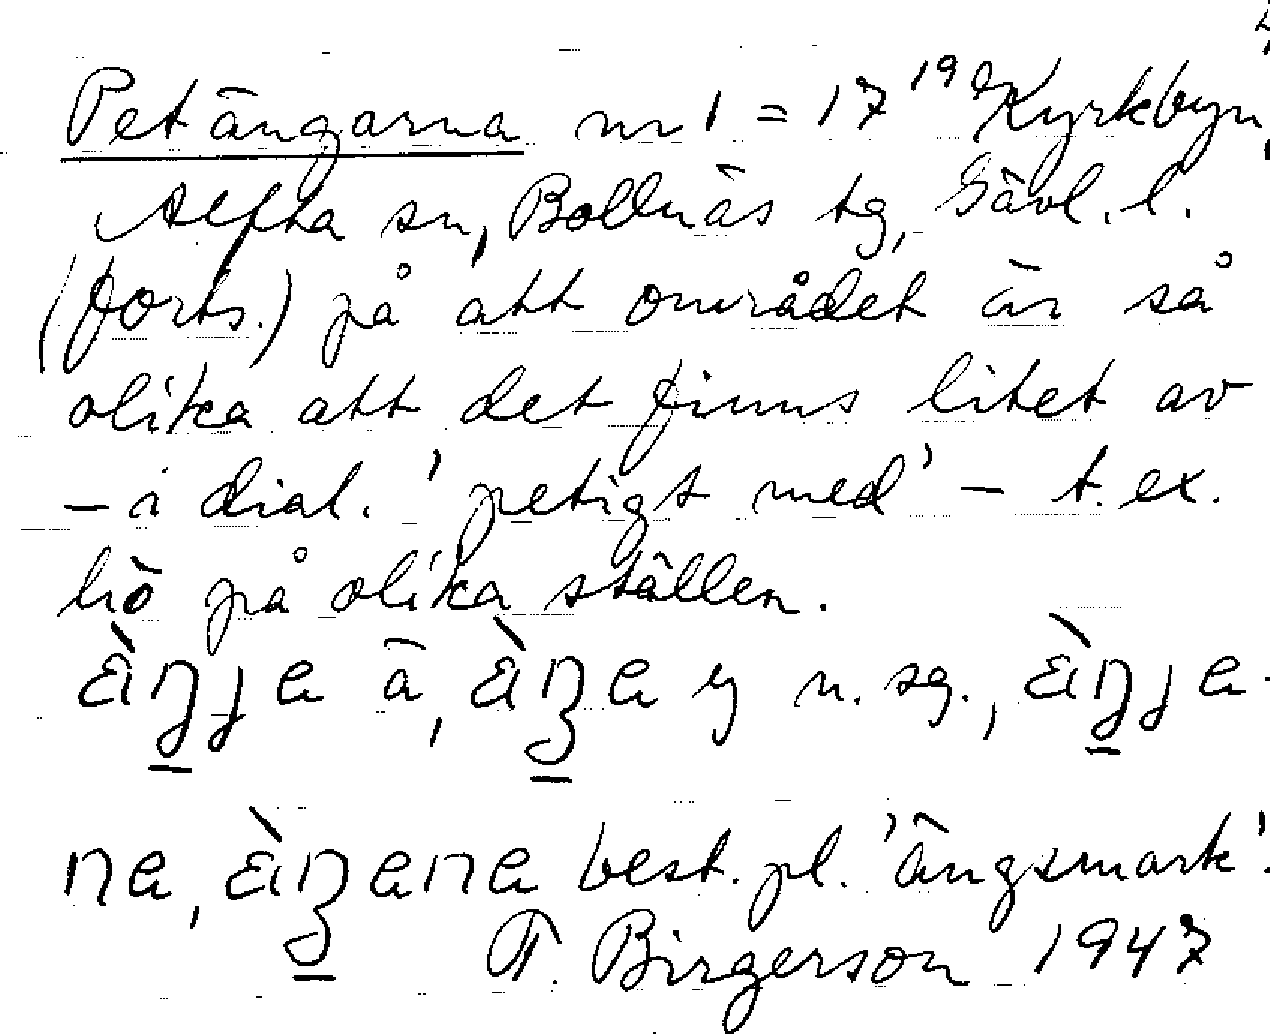 Petängarna nr 1 = 17¹⁹ Kyrkbyn,
Alfta sn, Bollnäs tg, Gävl. l.
(forts.) på att området är så
olika att det finns litet av
– i dial. 'petigt med' – t. ex.
hö på olika ställen.
n. sg.,
best. pl. 'ängsmark'.
F. Birgerson 1947